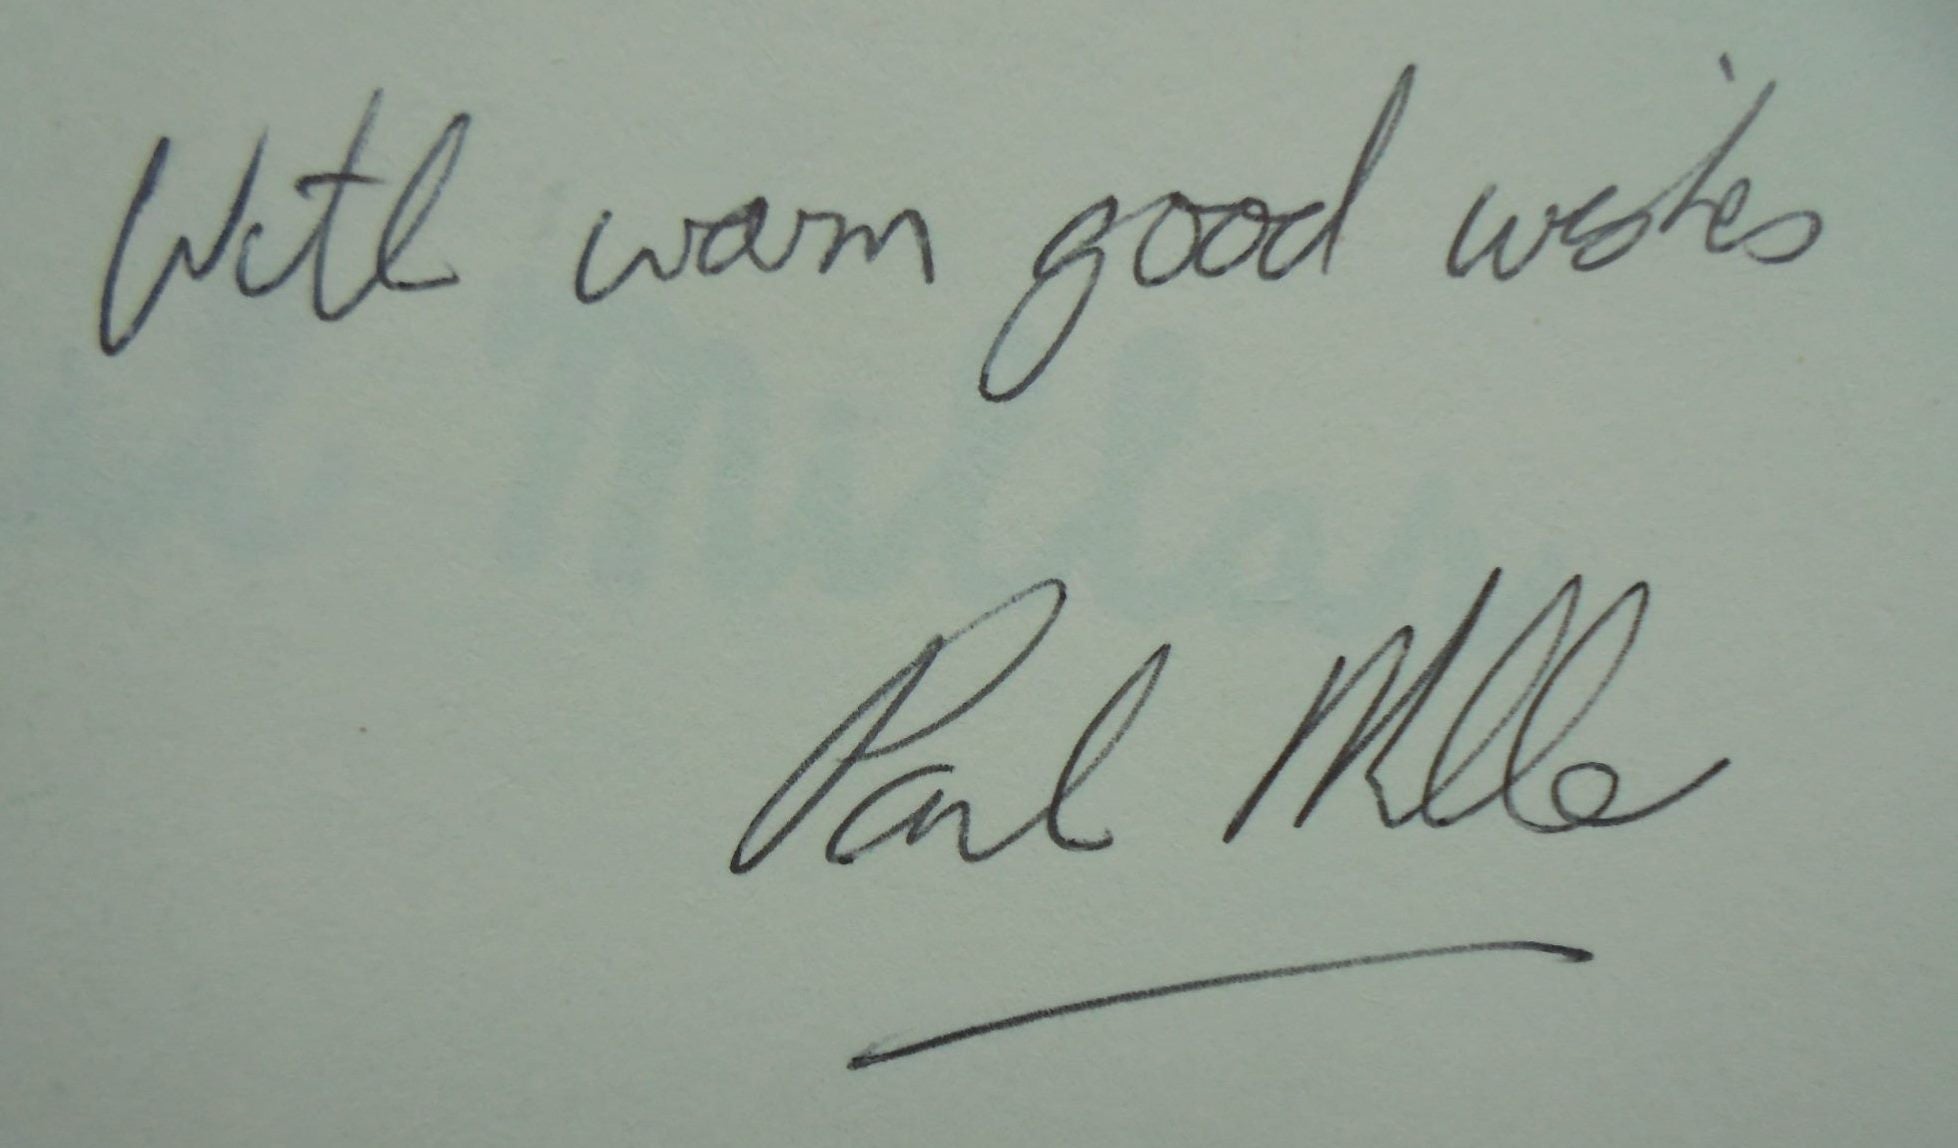 With warm good wishes
Paul